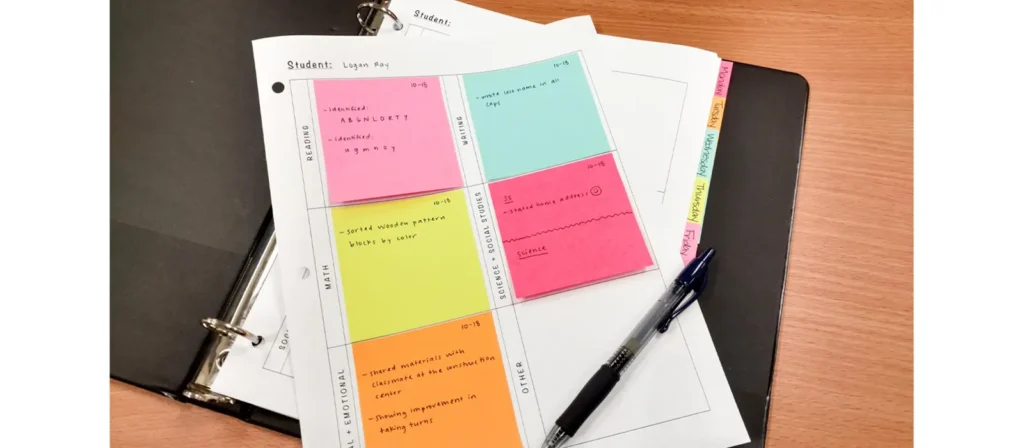 Student:
Student: Logan Ray
READING
10-18
- Identified:
A B G N L O R T Y
- Identified:
a g m n o y
WRITING
10-18
- wrote last name in all
caps
MATH
10-18
- sorted wooden pattern
blocks by color
SCIENCE + SOCIAL STUDIES
10-18
SS
- stated home address
science
L + EMOTIONAL
10-18
- shared materials with
classmate at the construction
center
- showing improvement in
taking turns
OTHER
Monday
Tuesday
Wednesday
Thursday
Friday
SOC